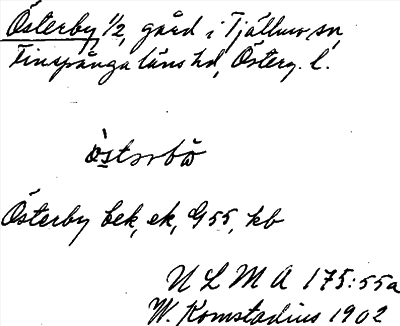 Österby ½, gård i Tjällmo sn,
Finspånga läns hd, Österg. l.
Österby bek, ek, G55, kb
ULMA 175:55a
W. Komstadius 1902